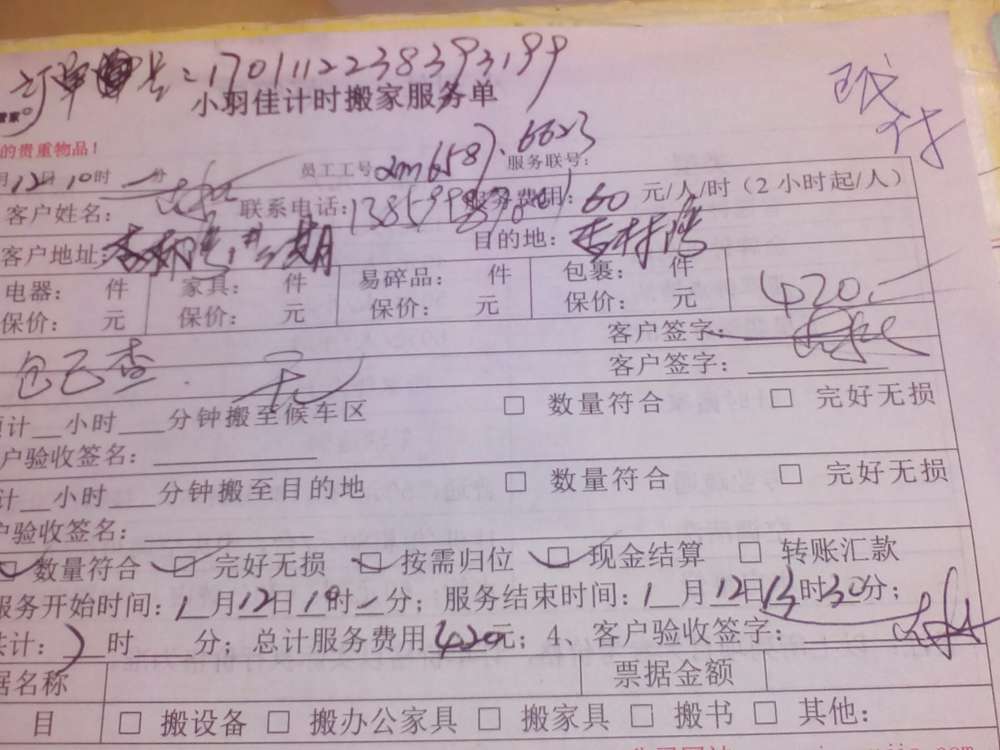 订单号:170111223839319​9
现付
小羽佳计时搬家服务单
的贵重物品!
月12日10时一分 员工工号 6587.6623 服务联号:
客户姓名: 联系电话:1385998 服务费用:60元/人/时(2小时起/人)
客户地址:杏林湾 二期 目的地:杏林湾
电器: 件 家具: 件 易碎品: 件 包裹: 件
保价: 元 保价: 元 保价: 元 保价: 元 420.-
客户签字:
包已查 无 客户签字:
计__小时___分钟搬至候车区 □ 数量符合 □ 完好无损
户验收签名:
计__小时___分钟搬至目的地 □ 数量符合 □ 完好无损
户验收签名:
数量符合 □ 完好无损 □ 按需归位 □ 现金结算 □ 转账汇款
服务开始时间:1月12日10时 分;服务结束时间:1月12日13时30分;
共计:7时 分;总计服务费用420元;4、客户验收签字:
据名称 票据金额
目 □ 搬设备 □ 搬办公家具 □ 搬家具 □ 搬书 □ 其他: